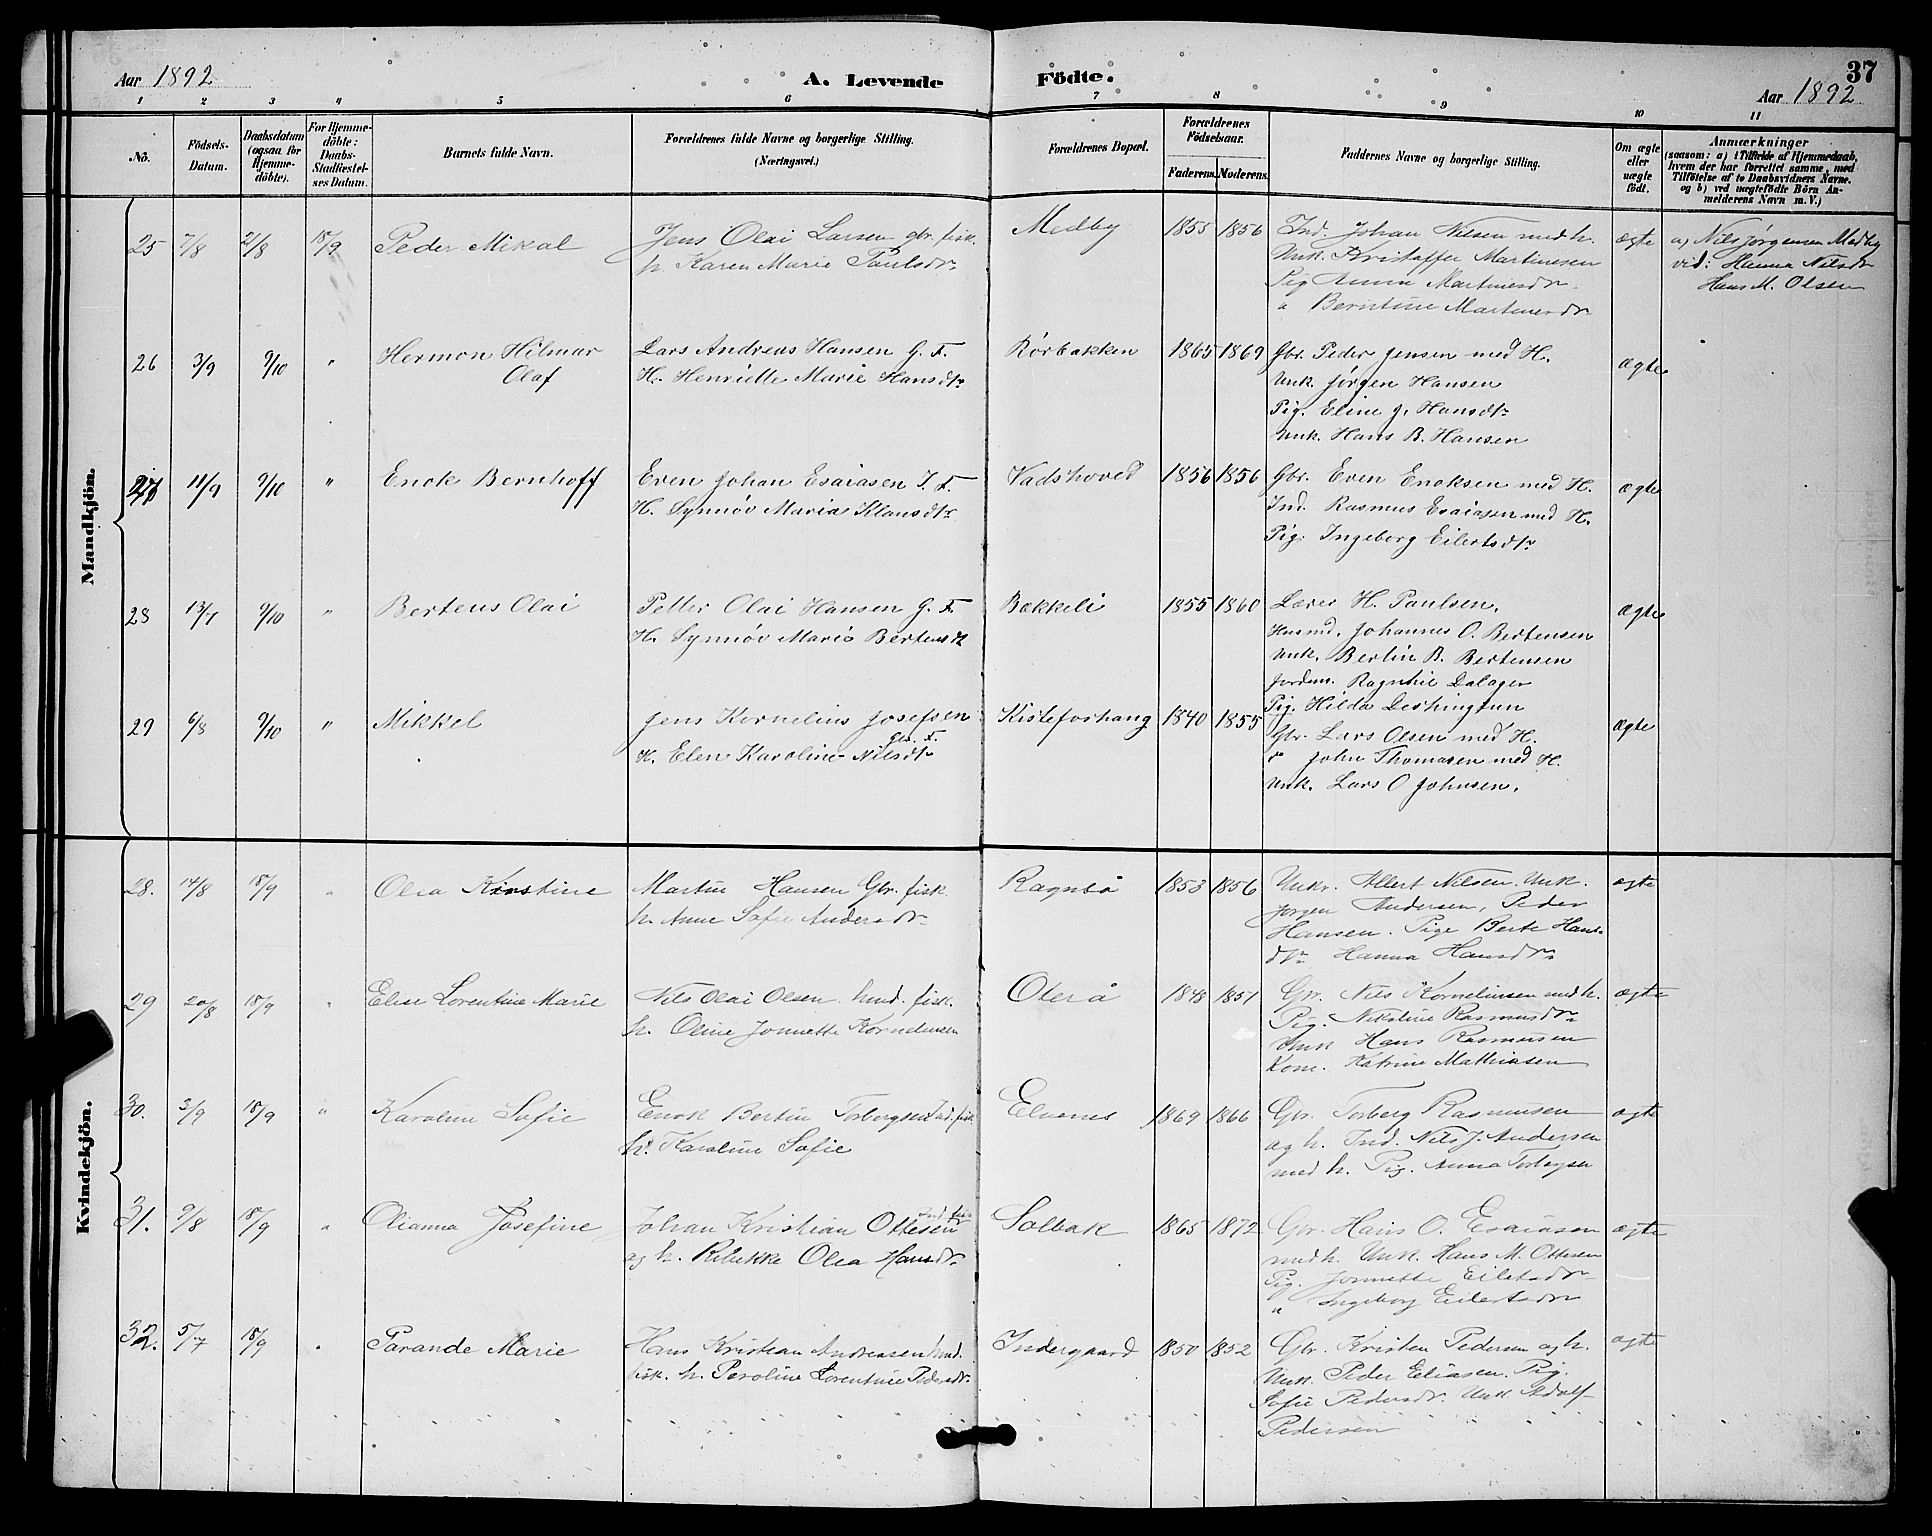 37
Aar 1892 A. Levende Födte. Aar 1892
1 2 3 4 5 6 7 8 9 10 11
No.
Födsels-
Datum.
Daabsdatum
(ogsaa for
Hjemme-
döbte).
For Hjemme-
döbte:
Daabs-
Stadfæstel-
ses Datum.
Barnets fulde Navn.
Forældrenes fulde Navne og borgerlige Stilling.
(Næringsvei.)
Forældrenes Bopæl.
Forældrenes
Födselsaar.
Faderens. Moderens.
Faddernes Navne og borgerlige Stilling.
Om ægte
eller
uægte
födt.
Anmærkninger
(saasom: a) i Tilfælde af Hjemmedaab,
hvem der har forrettet samme, med
Tilföielse af to Daabsvidners Navne.
og b) ved uægtefödte Börn An-
melderens Navn m. V.)
Mandkjön.
25 7/8 21/8 18/9 Peder Mikal
Jens Olai Larsen gbr. fisk.
h. Karen Marie Paulsdr
Medby 1855 1856
Ind. Johan Nilsen med h.
Unk. Kristoffer Martinusen
Pig Anna Martinusdr
" Berntine Martinusdr
ægte
a, Nils Jørgensen Medby
vid: Hanna Nilsdr
Hans M. Olsen
26 3/9 9/10 " Hermon Hilmar
Olaf
Lars Andreas Hansen G. F.
H. Henriette Marie Hansdtr
Rørbakken 1865 1869
Gbr. Peder Jensen med H.
Unk. Jørgen Hansen
Pig. Eline J. Hansdtr
Unk. Hans B. Hansen
ægte
27 11/9 9/10 " Enok Bernhoff
Even Johan Esaiasen I. F.
H. Synnøv Marias Klausdtr
Vadshoved 1856 1856
Gbr. Even Enoksen med H.
Ind. Rasmus Esaiasen med H.
Pig. Ingeborg Eilertsdtr
ægte
28 13/7 9/10 " Bertens Olai
Petter Olai Hansen G. F.
H. Synnøv Maria Bertensdt
Bakkeli 1855 1860
Lærer H. Paulsen,
Husmd. Johannes O. Bertensen
Unk. Bertin B. Bertensen
Jordm. Ragnhil Dalager
Pig. Hilda Leshington
ægte
29 6/8 9/10 " Mikkel
Jens Kornelius Josefsen
Gbr. F.
H. Elen Karoline Nilsdtr
Kisteforhaug 1840 1855
Gbr. Lars Olsen med H.
" John Thomasen med H.
Unk. Lars O Johnsen.
ægte
Kvindekjön.
28. 14/8 18/9 " Olea Kristine
Martin Hansen Gbr. fisk
h. Anne Safie Andersdr
Ragnbø 1853 1856
Unkr. Albert Nilsen. Unk.
Jørgen Andersen, Peder
Hansen. Pige Berte Hans-
dtr Hanna Hansdr
ægte
29 20/8 18/9 " Elise Lorentine Marie
Nils Olai Olsen hmd. fisk.
h. Oline Jonnette Kornelensen
Oterå 1848 1851
Gbr. Nils Korneliusen med h.
Pig. Nikoline Rasmusdr
Unk Hans Rasmusen
Kone. Katrine Mathiasen
ægte
30. 3/9 18/9 " Karoline Safie
Enok Bertin Torbergsen Ind. fisk
h. Karoline Safie
Elvenes 1869 1866
Gbr. Torberg Rasmusen
og h. Ind. Nils J. Andersen
med h. Pig. Anna Torbergsen
ægte
31. 9/8 18/9 " Olianna Josefine
Ind. fisk
Johan Kristian Ottesen
og h. Rebekke Olea Hansdr
Solbak 1865 1872
Gbr. Hans O. Esaiasen
med h. Unk. Hans M. Ottesen
Pig. Jonnette Eilertsdr
" Ingeborg Eilertsdr
ægte
32. 5/7 18/9 " Parande Marie
Hans Kristian Andreasen hmd.
fisk. h. Paroline Lorentine Pedersdr
Indergaard 1850 1852
Gbr. Kristen Pedersen og h.
Unk. Peder Eliasen. Pig.
Sofie Pedersdr. Unk. Adolf
Pedersen
ægte